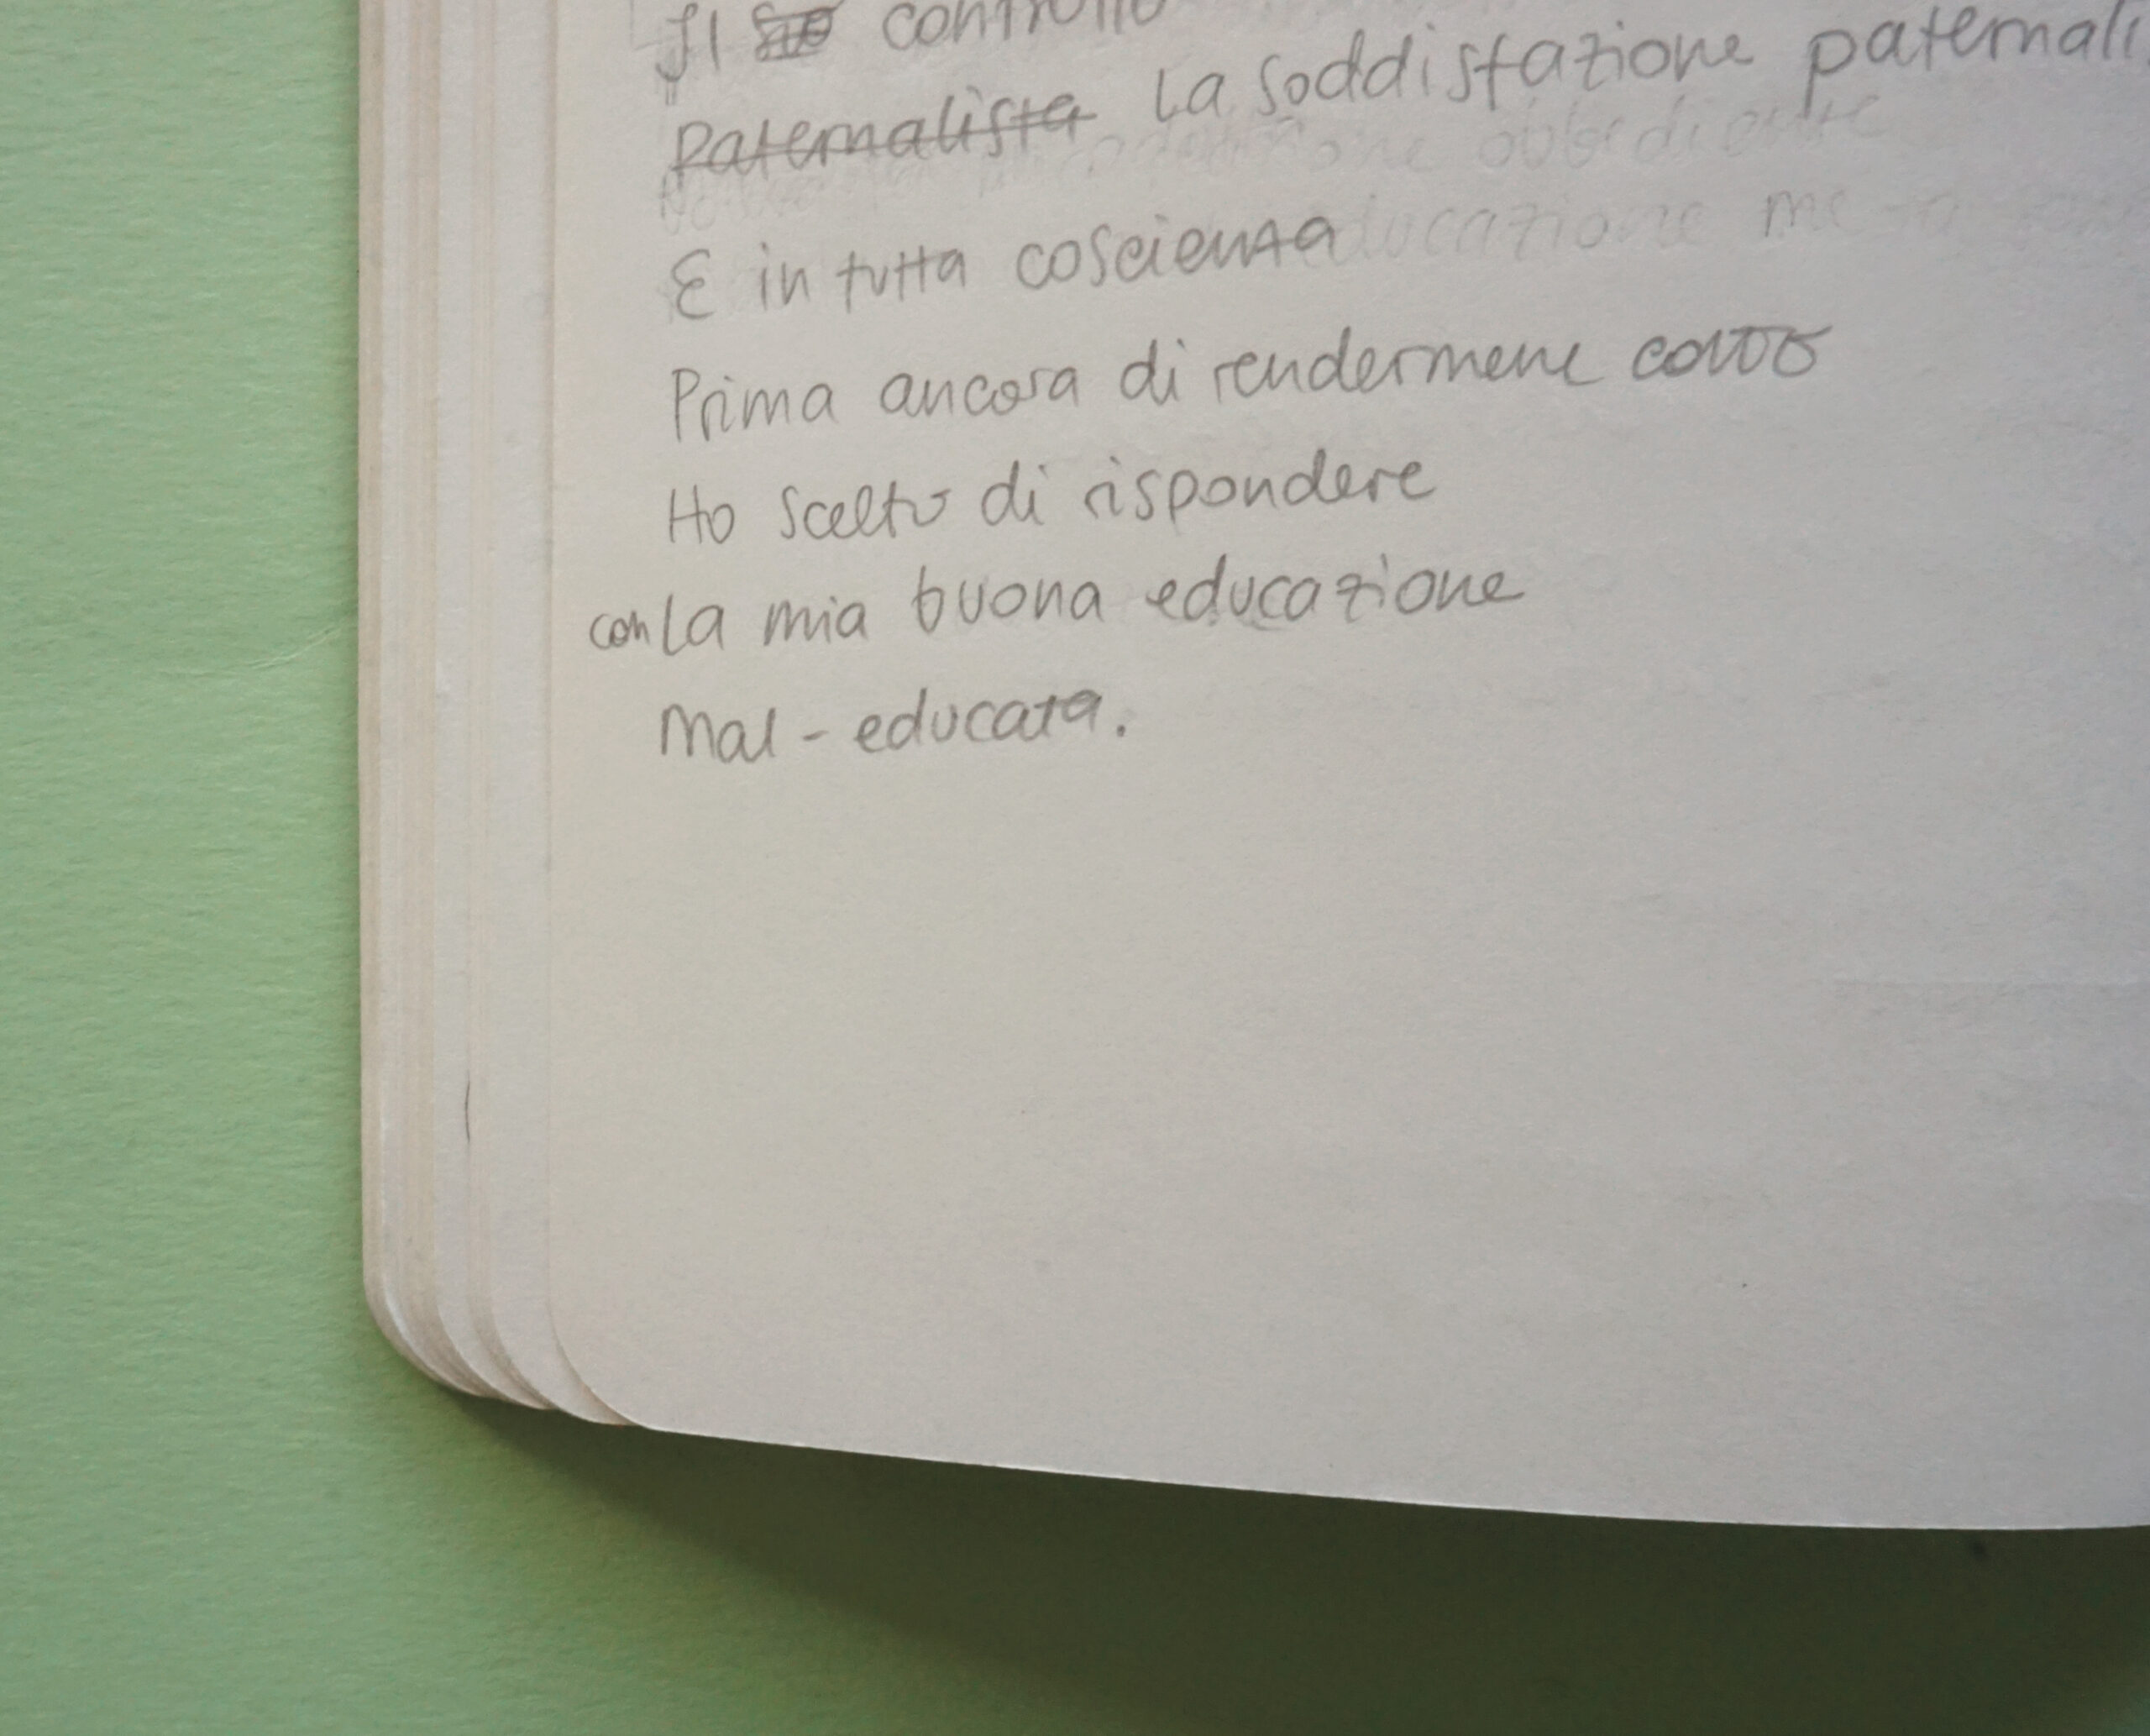 Il controllo
Paternalista La soddisfazione paternali
E in tutta coscienza
Prima ancora di rendermene conto
Ho scelto di rispondere
con la mia buona educazione
Mal-educata.